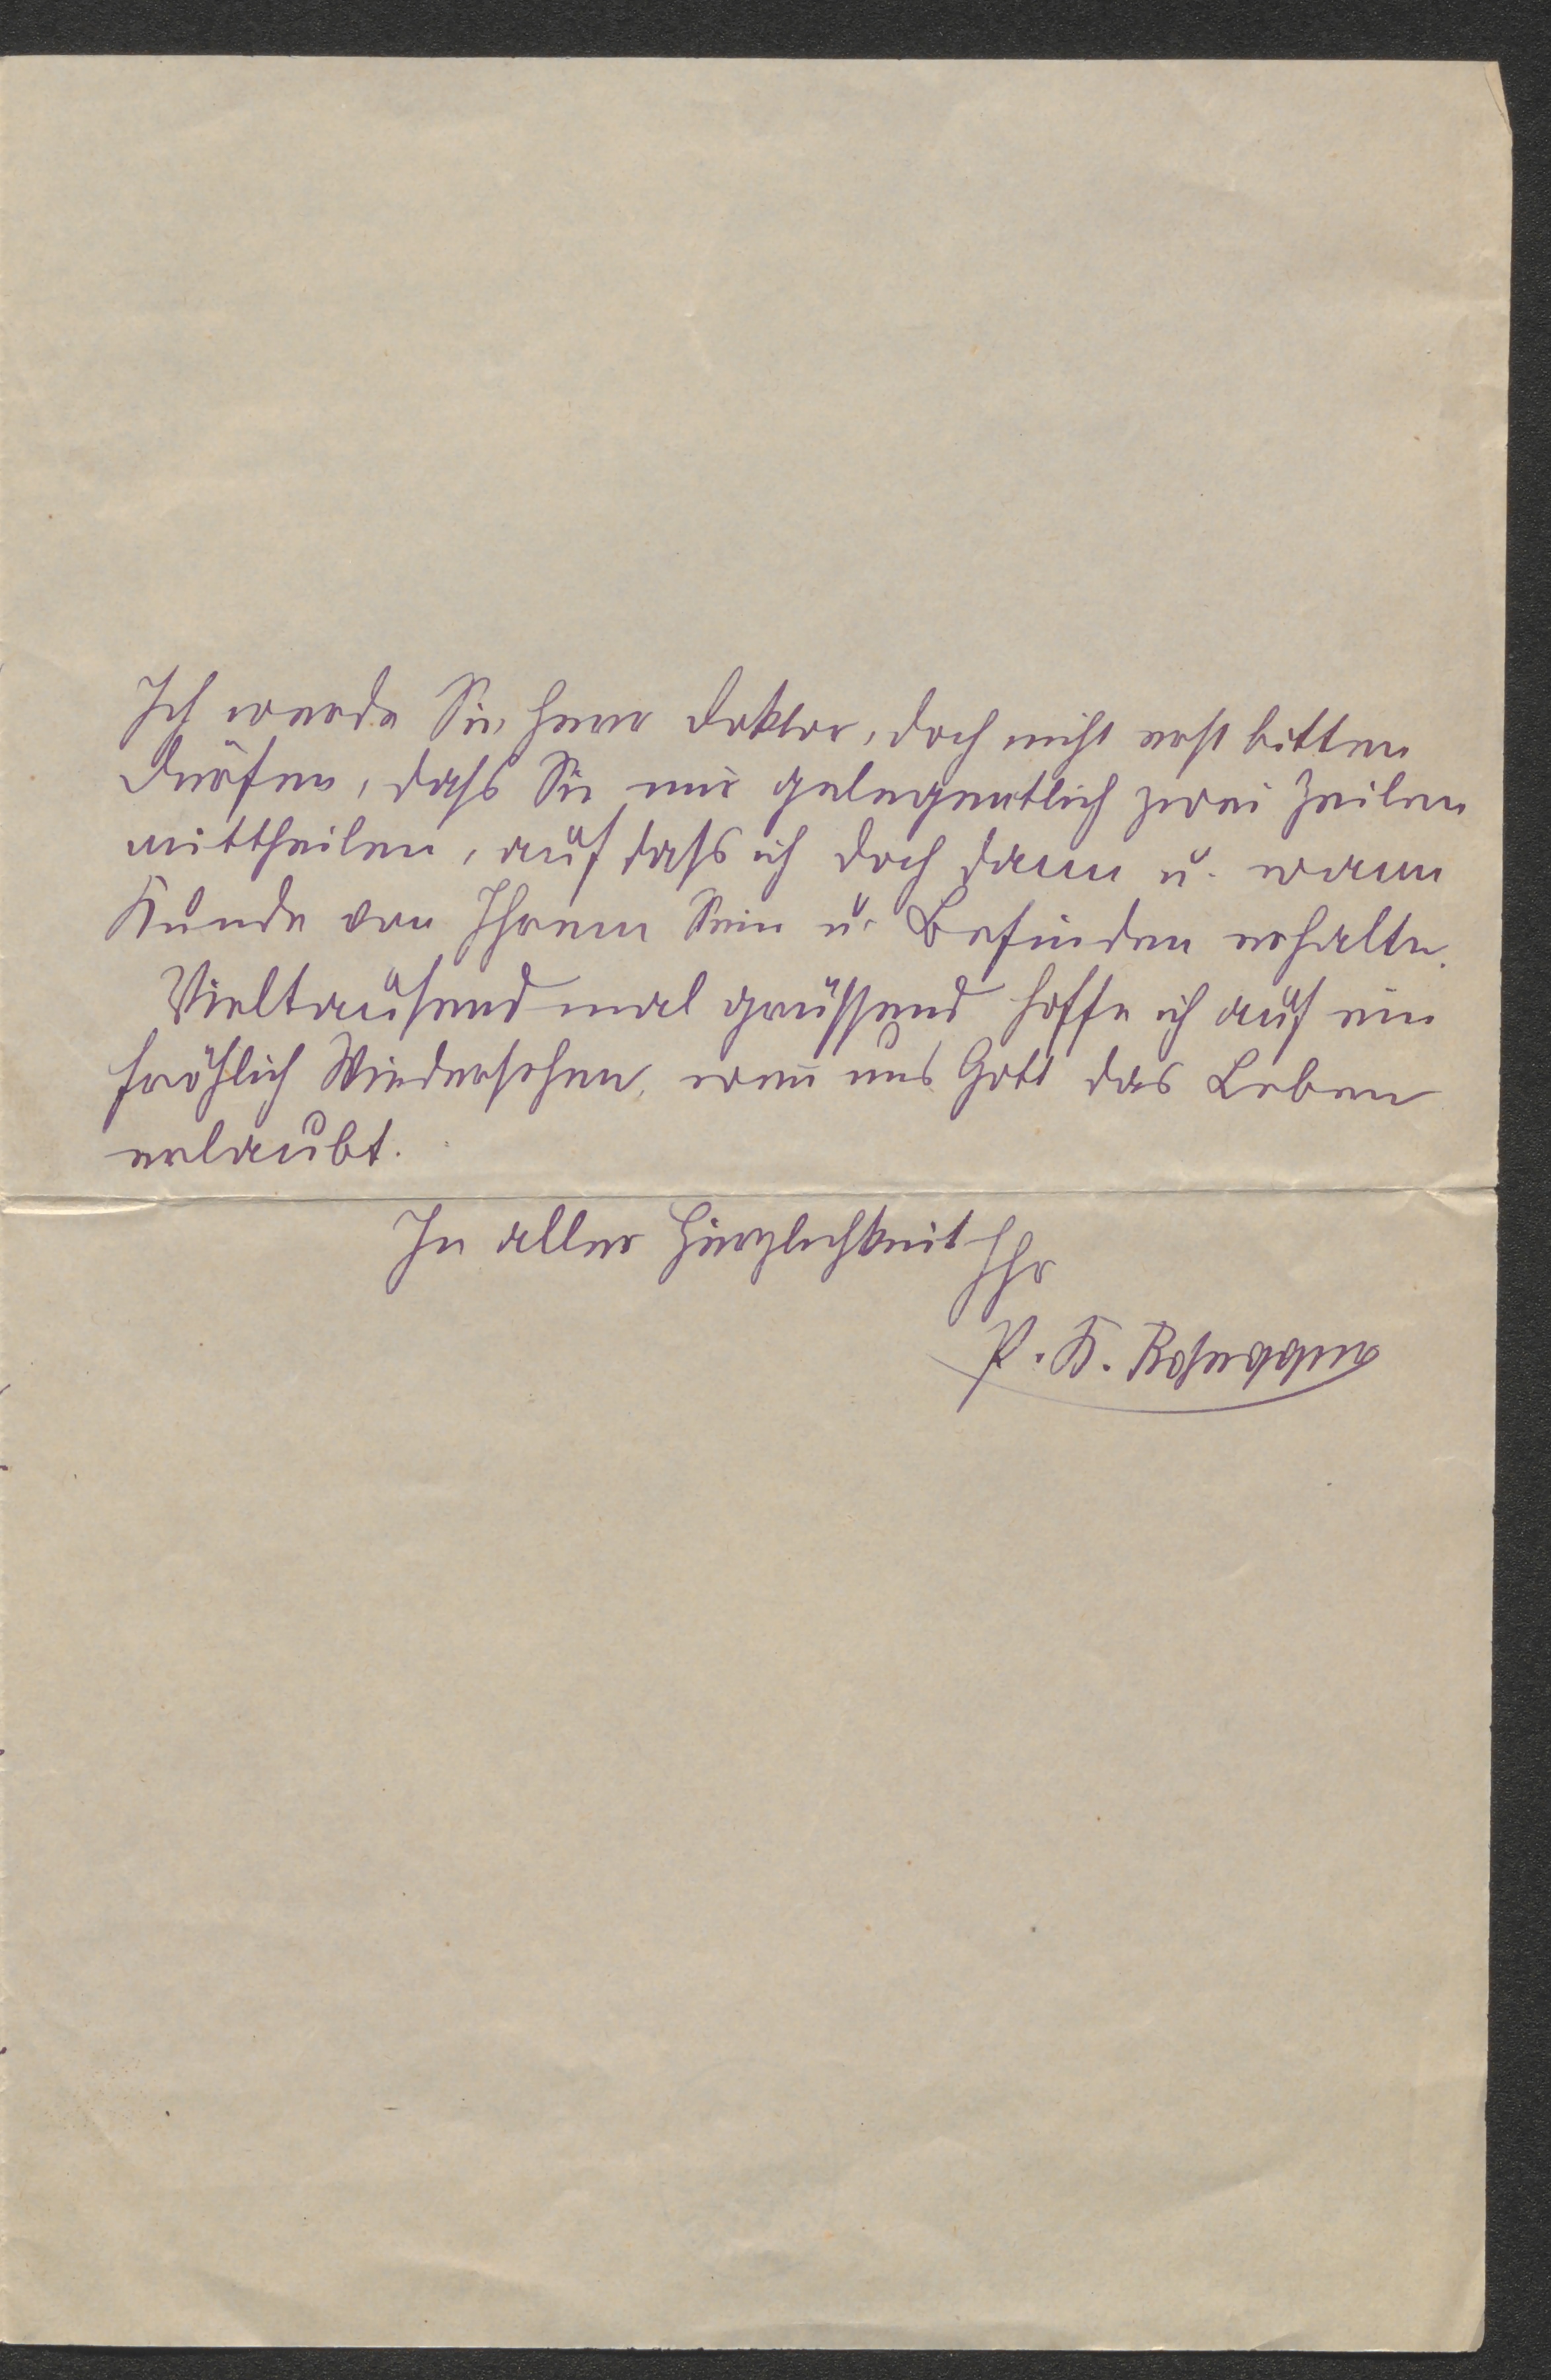 Ich werde Sie, Herr Doktor, doch nicht erst bitten
dürfen, dass Sie mir gelegentlich zwei Zeilen
mittheilen, auf dass ich doch dann u. wann
Kunde von Ihrem Sein u. Befinden erhalte.
Vieltausendmal grüssend hoffe ich auf ein
fröhlich Wiedersehen, wen̄ uns Gott das Leben
erlaubt.
In aller Herzlichkeit Ihr
P. K. Rosegger